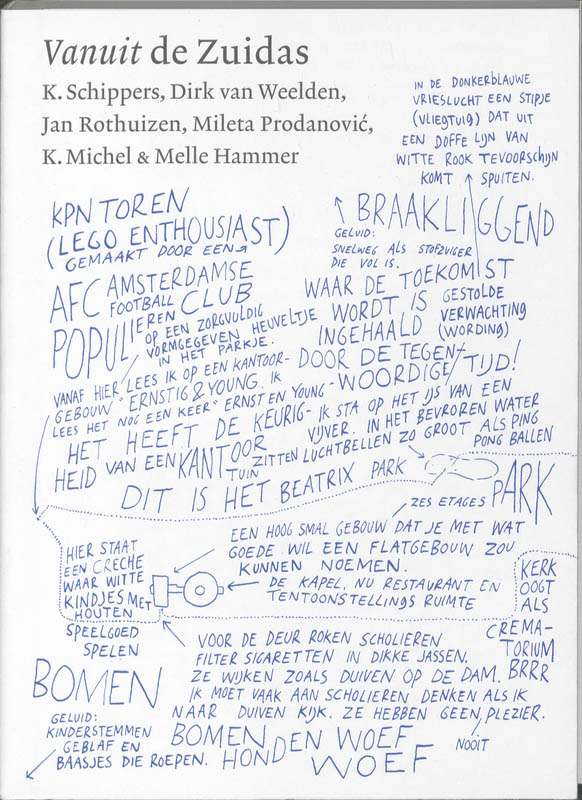 Vanuit de Zuidas
K. Schippers, Dirk van Weelden,
Jan Rothuizen, Mileta Prodanović,
K. Michel & Melle Hammer
IN DE DONKERBLAUWE
VRIESLUCHT EEN STIPJE
(VLIEGTUIG) DAT UIT
EEN DOFFE LIJN VAN
WITTE ROOK TEVOORSCHIJN
KOMT SPUITEN.
KPN TOREN
(LEGO ENTHOUSIAST)
GEMAAKT DOOR EEN
BRAAKLIGGEND
GELUID:
SNELWEG ALS STOFZUIGER
DIE VOL IS.
AFC AMSTERDAMSE
FOOTBALL CLUB
POPULIEREN
OP EEN ZORGVULDIG
VORMGEGEVEN HEUVELTJE
IN HET PARKJE.
WAAR DE TOEKOMST
WORDT IS
INGEHAALD
DOOR DE TEGEN-
WOORDIGE TIJD!
GESTOLDE
VERWACHTING
(WORDING)
VANAF HIER LEES IK OP EEN KANTOOR-
GEBOUW "ERNSTIG & YOUNG. IK
LEES HET NOG EEN KEER "ERNST EN YOUNG"
HET HEEFT DE KEURIG-
HEID VAN EEN KANTOOR
TUIN
IK STA OP HET IJS VAN EEN
VIJVER. IN HET BEVROREN WATER
ZITTEN LUCHTBELLEN ZO GROOT ALS PING
PONG BALLEN
DIT IS HET BEATRIX PARK
ZES ETAGES
PARK
EEN HOOG SMAL GEBOUW DAT JE MET WAT
GOEDE WIL EEN FLATGEBOUW ZOU
KUNNEN NOEMEN.
HIER STAAT
EEN CRECHE
WAAR WITTE
KINDJES MET
HOUTEN
SPEELGOED
SPELEN
DE KAPEL, NU RESTAURANT EN
TENTOONSTELLINGS RUIMTE
KERK
OOGT
ALS
CREMA-
TORIUM
BRRR
VOOR DE DEUR ROKEN SCHOLIEREN
FILTER SIGARETTEN IN DIKKE JASSEN.
ZE WIJKEN ZOALS DUIVEN OP DE DAM.
IK MOET VAAK AAN SCHOLIEREN DENKEN ALS IK
NAAR DUIVEN KIJK. ZE HEBBEN GEEN PLEZIER.
NOOIT
BOMEN
GELUID:
KINDERSTEMMEN
GEBLAF EN
BAASJES DIE ROEPEN.
BOMEN
HONDEN WOEF
WOEF